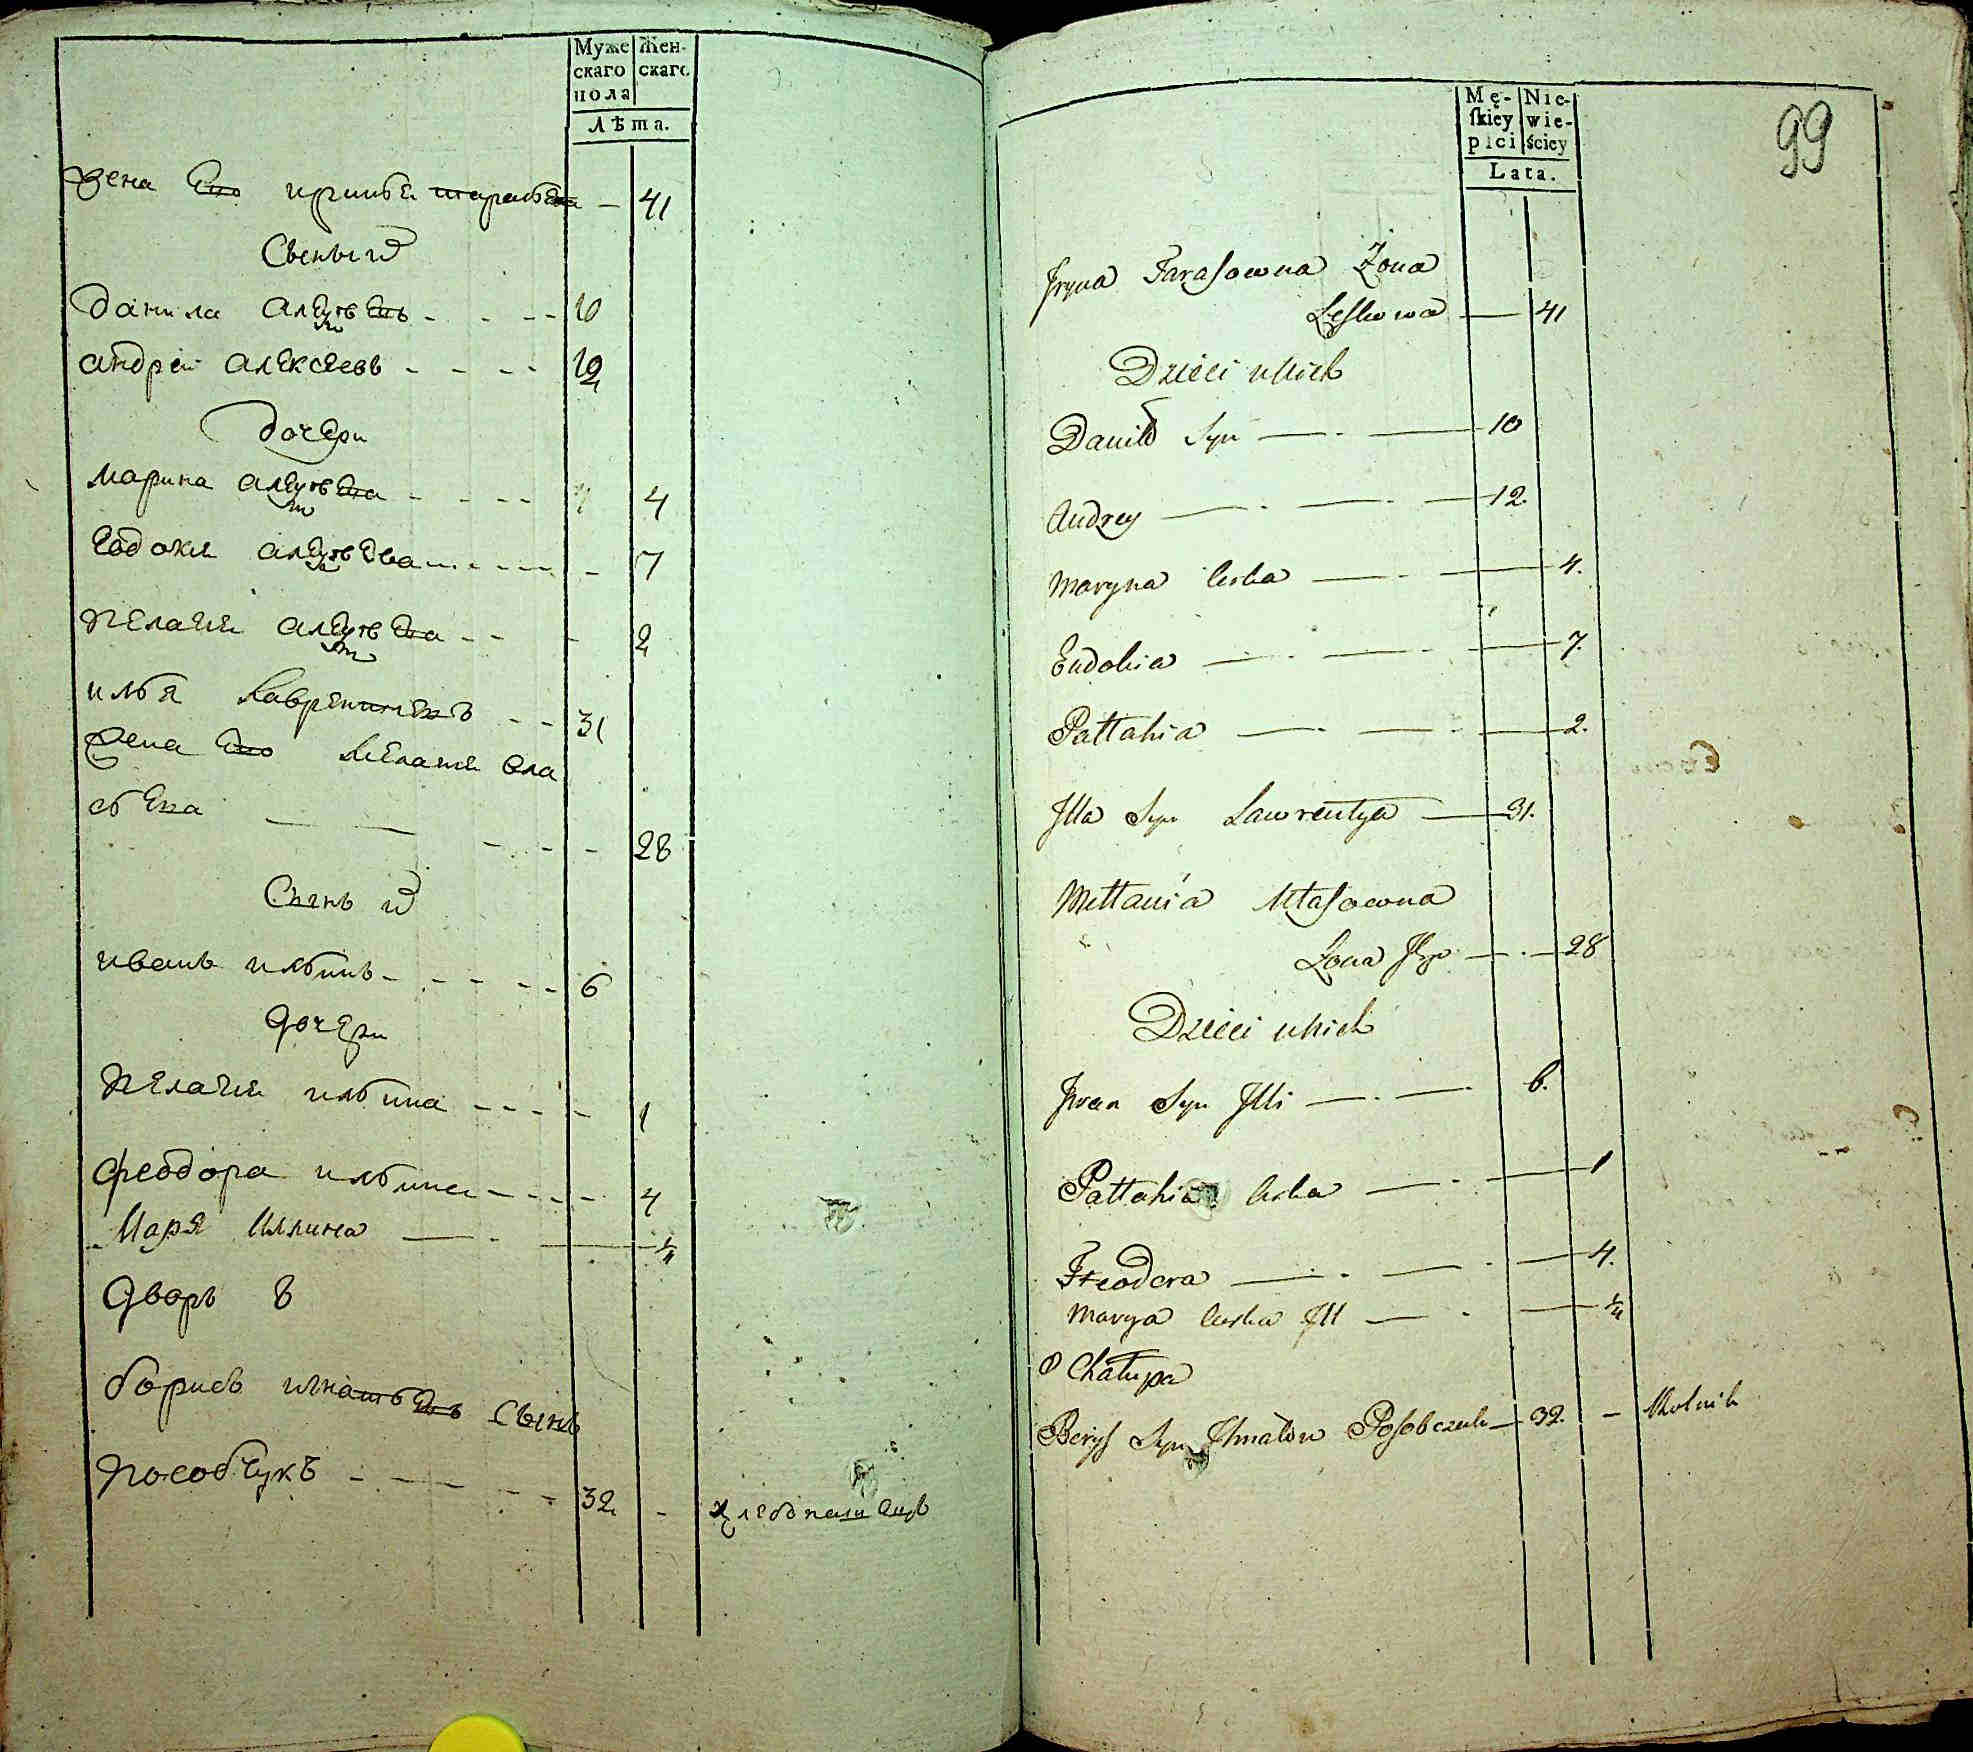 Муже Жен-
скаго скаго
пола
Лѣта.
жена Его ирина тарасьева - 41
Сыны их
данила алексеевъ - - - - 10
андреи алексеевъ - - - - 12
дочери
марина алексеева - - - - 4
Евдокия алексеева - - - - 7
пелагия алексеева - - - 2
илья лаврентиевъ - - 31
жена Его мелания вла
сьева — — - - - 28
Сынъ их
иванъ ильинъ - - - - - 6
Дочери
пелагия ильина - - - - 1
феодора ильина - - - - 4
Марья Ильина — - — 1/4
Дворъ 8
борисъ игнатьевъ Сынъ
пособчукъ - - - - - - 32 - хлебопашецъ
99
Mę- Nie-
ſkiey wie-
płci ściey
Lata.
Jryna Taraſowna Żona
Leſkowa — 41
Dzieci u nich
Daniło Syn — - — 10
Andrey — - — - — 12.
Maryna Curka — - — 4.
Eudokia — - — - — 7.
Pałłahia — - — - — 2.
Jlla Syn Lawrentya — 31.
Mełłania Ułaſowna
Żona Jlly — - — 28
Dzieci u nich
Jwan Syn Jlli — - — 6.
Pałłahia Curka — - — 1
Fteodora — - — - — 4.
Marya Curka Jll — - — 1/4
8 Chałupa
Borys Syn Jhnatow Poſobczuk — 32. - Rolnik